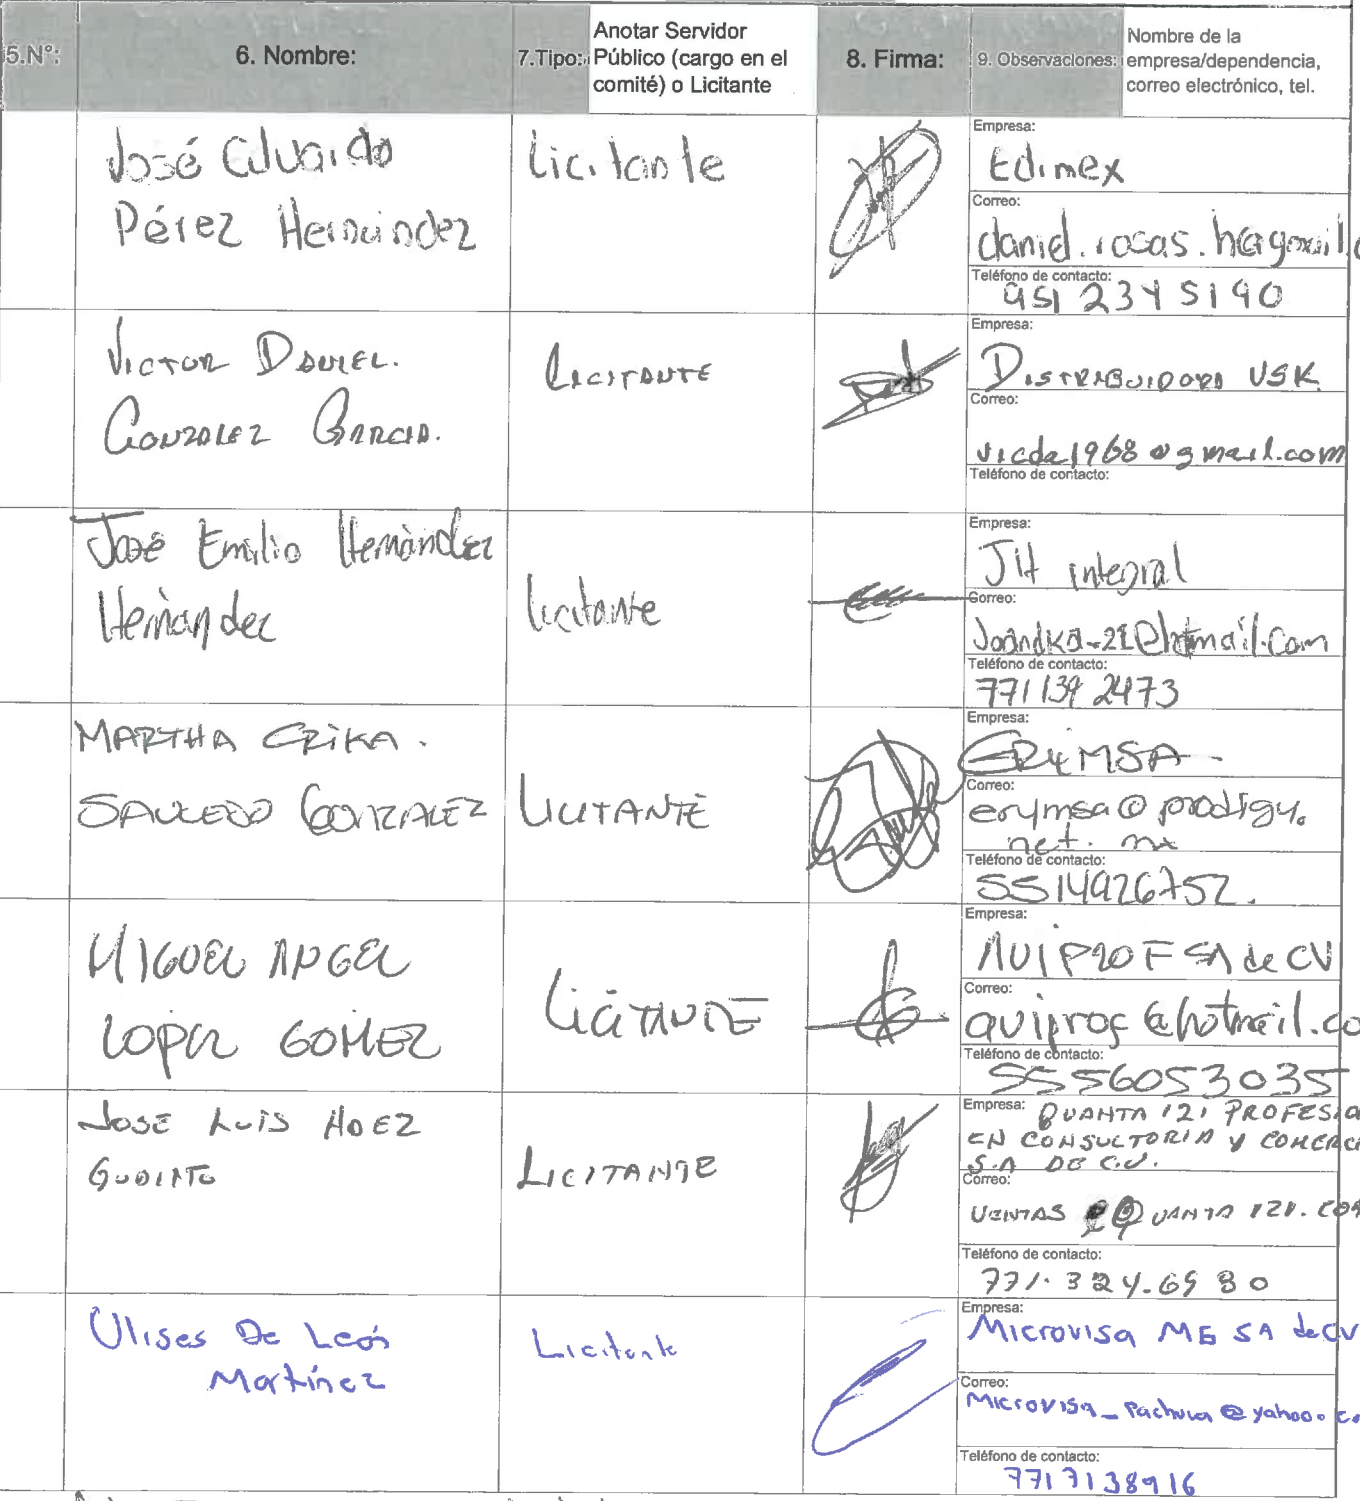 5.N°:
6. Nombre:
7.Tipo:
Anotar Servidor
Público (cargo en el
comité) o Licitante
8. Firma:
9. Observaciones:
Nombre de la
empresa/dependencia,
correo electrónico, tel.
José Eduardo
Pérez Hernández
Licitante
Empresa:
Edimex
Correo:
daniel.rocas.h@gmail.
Teléfono de contacto:
951 234 5190
VICTOR DANIEL.
GONZALEZ GARCIA.
LICITANTE
Empresa:
DISTRIBUIDORA VSK
Correo:
vicda1968@gmail.com
Teléfono de contacto:
José Emilio Hernández
Hernández
licitante
Empresa:
JH integral
Correo:
Joandka-21@hotmail.com
Teléfono de contacto:
771 139 2473
MARTHA ERIKA.
SAUCEDO GONZALEZ
LICITANTE
Empresa:
ERYMSA
Correo:
erymsa@prodigy.
net.mx
Teléfono de contacto:
5514926752.
MIGUEL ANGEL
LOPEZ GOMEZ
LICITANTE
Empresa:
SA de CV
Correo:
@hotmail.co
Teléfono de contacto:
5556053035
JOSE LUIS
GUDIÑO
LICITANTE
Empresa: QUANTA 121 PROFESIO
EN CONSULTORIA Y COMERCI
S.A DE C.V.
Correo:
VENTAS @QUANTA 121.COM
Teléfono de contacto:
771.324.6980
Ulises De León
Martínez
Licitante
Empresa:
Microvisa ME SA de CV
Correo:
Microvisa_Pachuca@yahoo.co
Teléfono de contacto:
7717138916